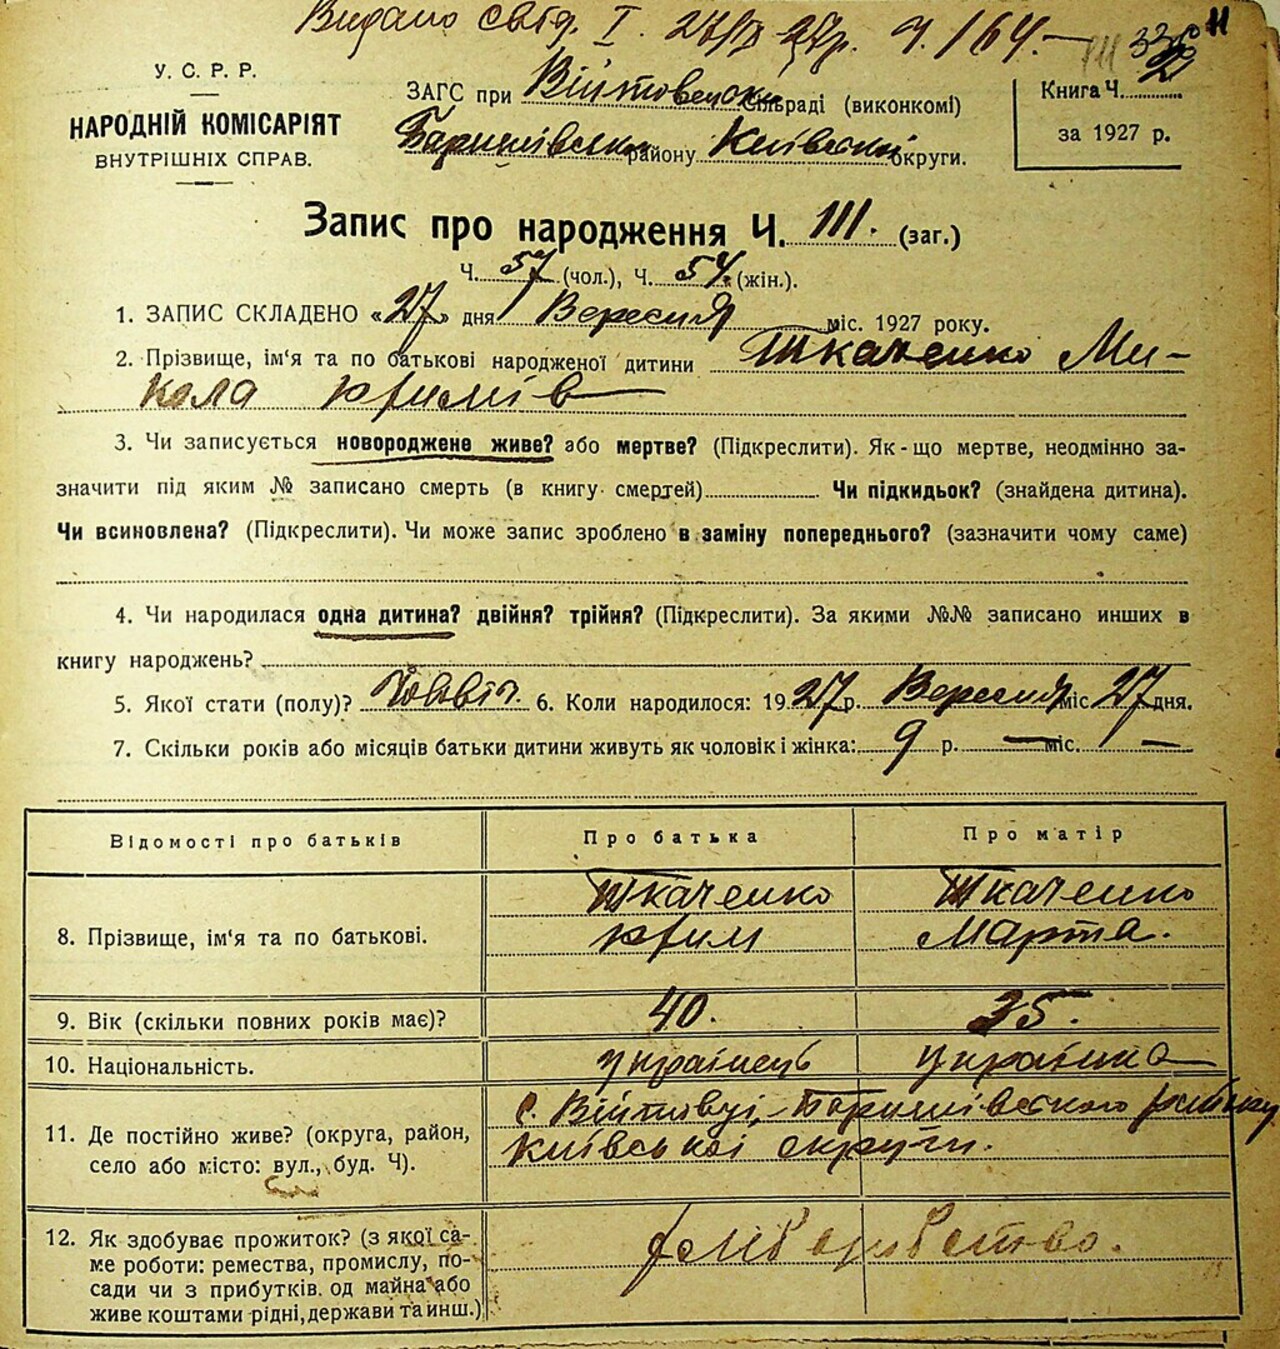 Видано свід. I. 27/IX 27р. Ч. 164.—
11
У. С. Р. Р.
НАРОДНІЙ КОМІСАРІЯТ
ВНУТРІШНІХ СПРАВ.
ЗАГС при Війтовецькій сільраді (виконкомі)
Баришівського району Київської округи.
Книга Ч. 2
за 1927 р.
Запис про народження Ч. 111. (заг.)
Ч. 57 (чол.), Ч. 54. (жін.).
1. ЗАПИС СКЛАДЕНО «27» дня Вересня міс. 1927 року.
2. Прізвище, ім'я та по батькові народженої дитини Ткаченко Ми-
кола
3. Чи записується новороджене живе? або мертве? (Підкреслити). Як-що мертве, неодмінно за-
значити під яким № записано смерть (в книгу смертей) Чи підкидьок? (знайдена дитина).
Чи всиновлена? (Підкреслити). Чи може запис зроблено в заміну попереднього? (зазначити чому саме)
4. Чи народилася одна дитина? двійня? трійня? (Підкреслити). За якими №№ записано инших в
книгу народжень?
5. Якої стати (полу)? 6. Коли народилося: 1927 р. Вересня міс 27 дня.
7. Скільки років або місяців батьки дитини живуть як чоловік і жінка: 9 р. — міс. —
Відомості про батьків
Про батька
Про матір
8. Прізвище, ім'я та по батькові.
Ткаченко
Ткаченко
Марта.
9. Вік (скільки повних років має)?
40.
35.
10. Національність.
українець
українка
11. Де постійно живе? (округа, район,
село або місто: вул., буд. Ч).
с. Війтовці, Баришівського району
Київської округи.
12. Як здобуває прожиток? (з якої са-
ме роботи: ремества, промислу, по-
сади чи з прибутків. од майна або
живе коштами рідні, держави та инш.)